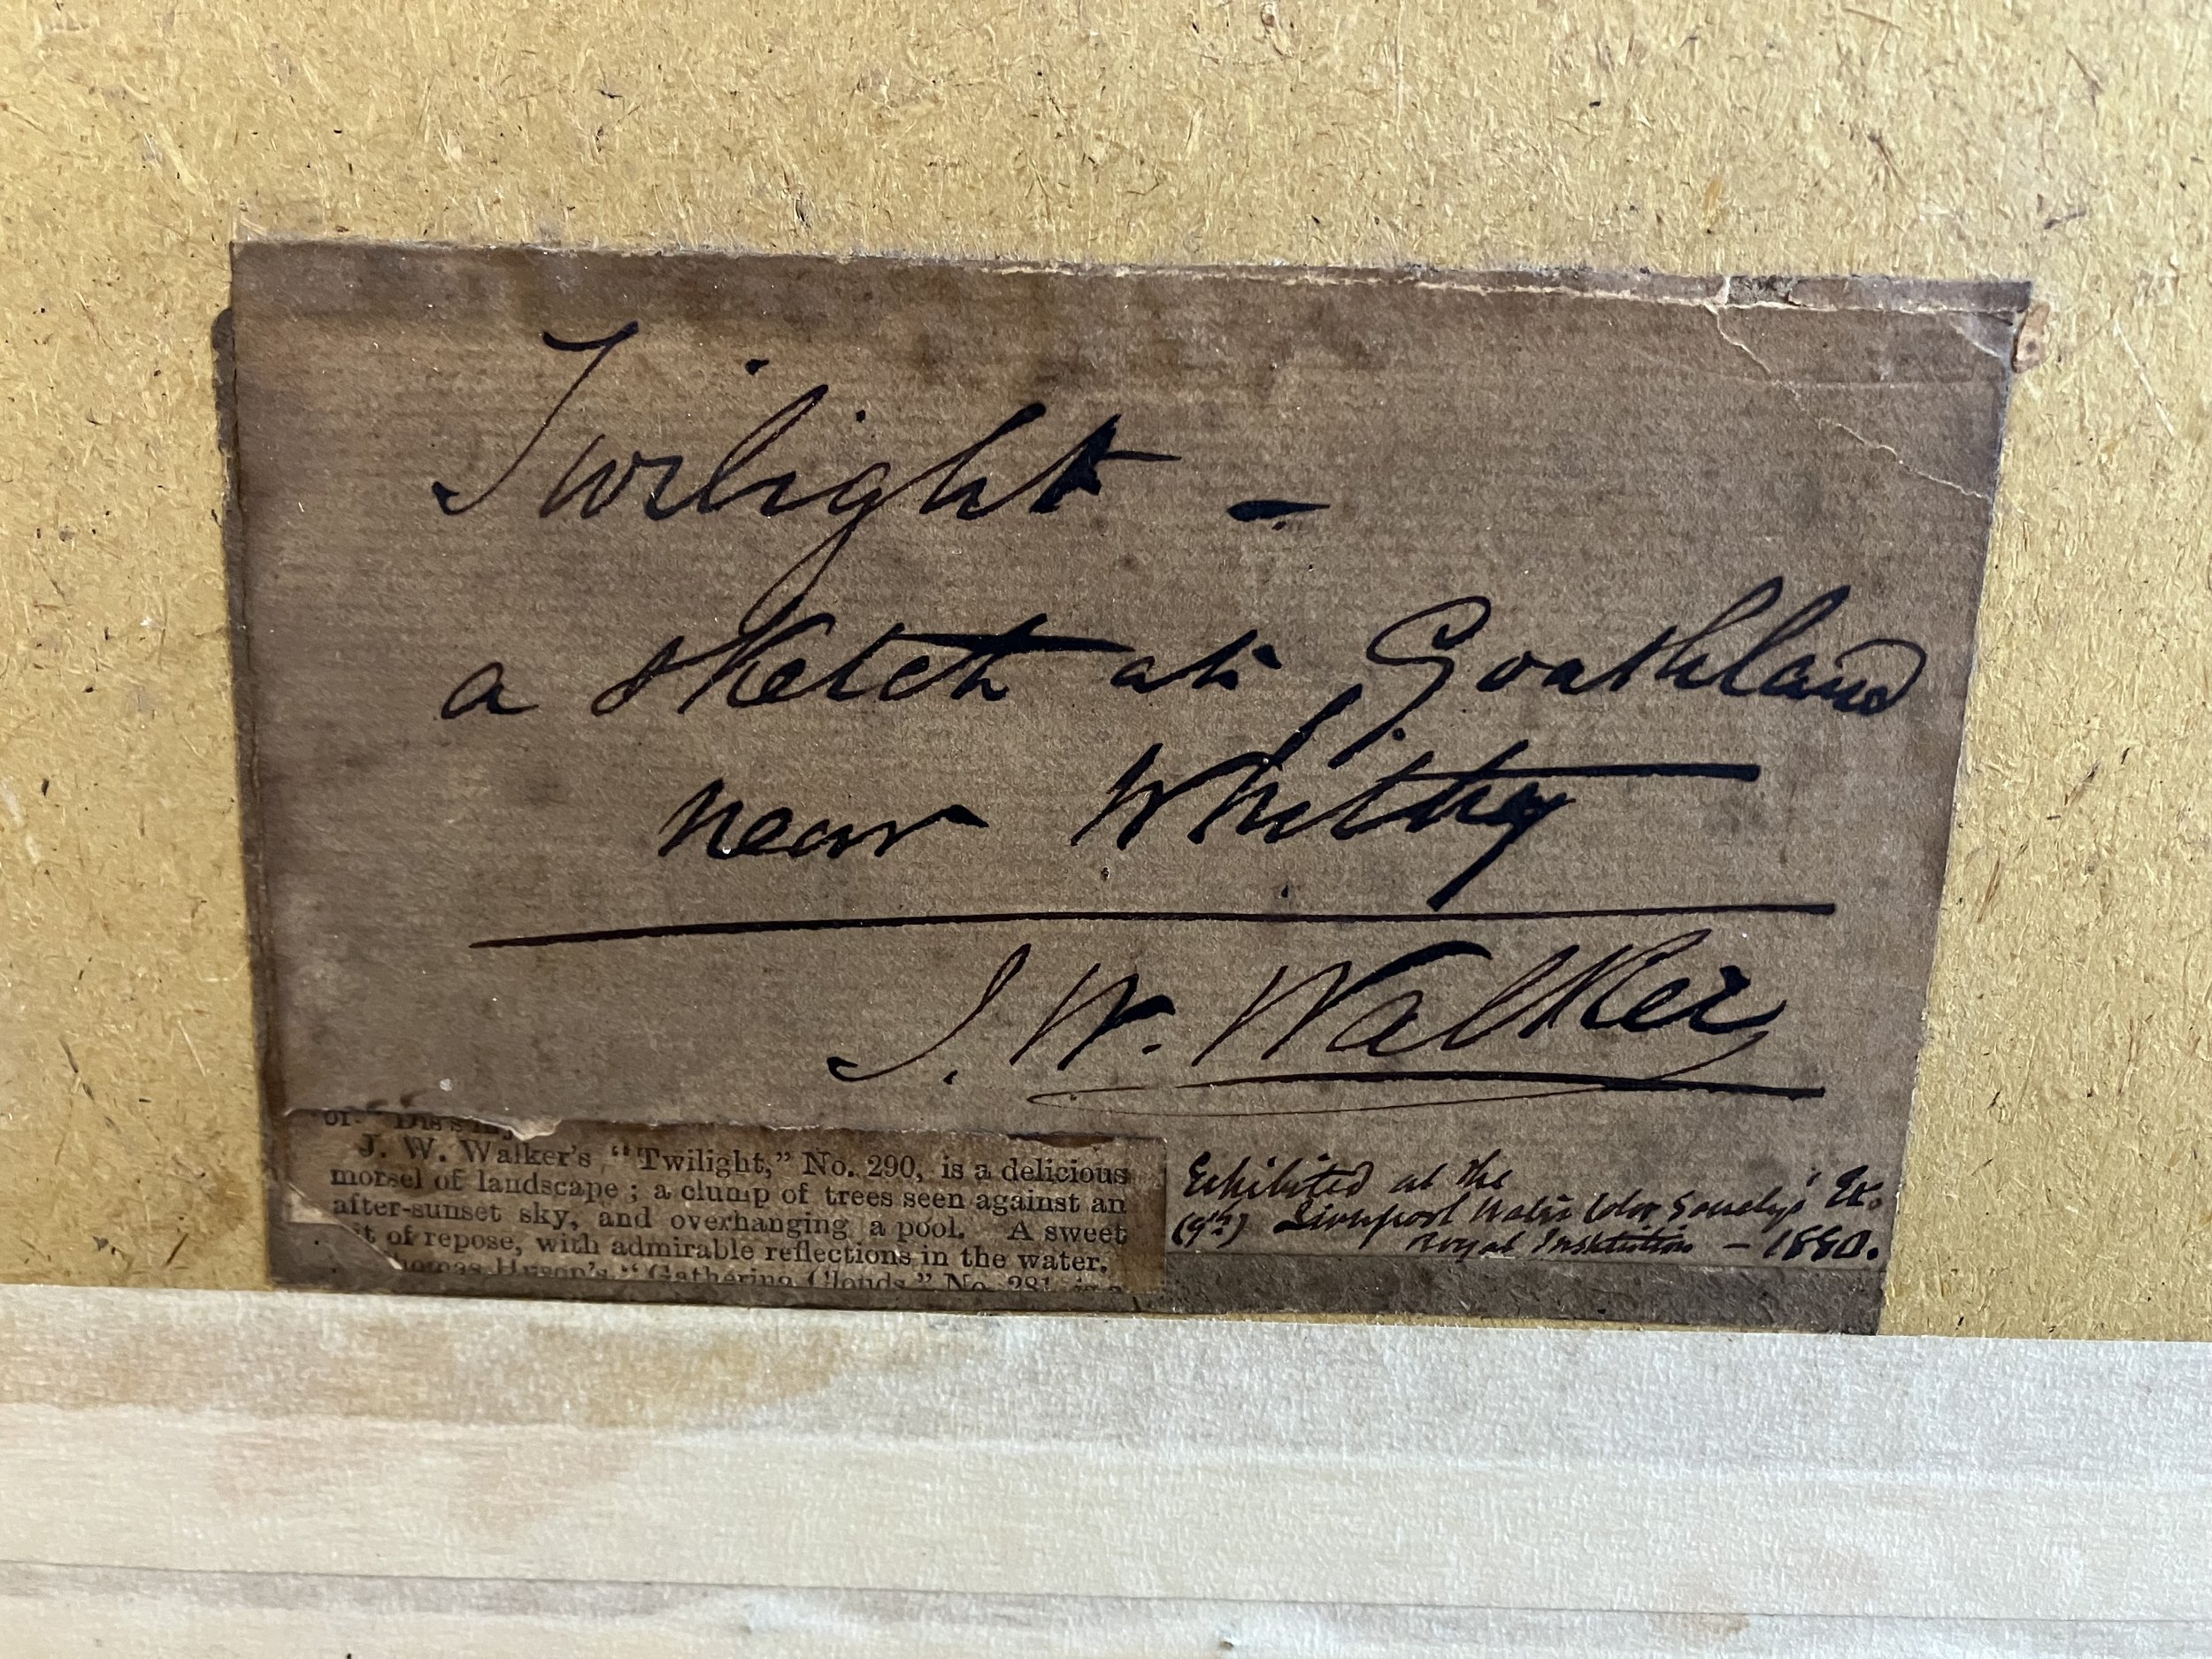 Twilight -
a sketch at Goathland
near Whitby
J. W. Walker
J. W. Walker's "Twilight," No. 290, is a delicious
morsel of landscape; a clump of trees seen against an
after-sunset sky, and overhanging a pool. A sweet
of repose, with admirable reflections in the water.
Huson's "Gathering Clouds," No. 281 is a
Exhibited at the
(9th) Liverpool Water Color Society's Ex.
Royal Institution - 1880.